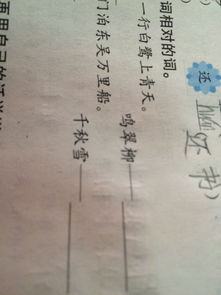 还
还书)
词相对的词。
一行白鹭上青天。
鸣翠柳——
门泊东吴万里船。
千秋雪——